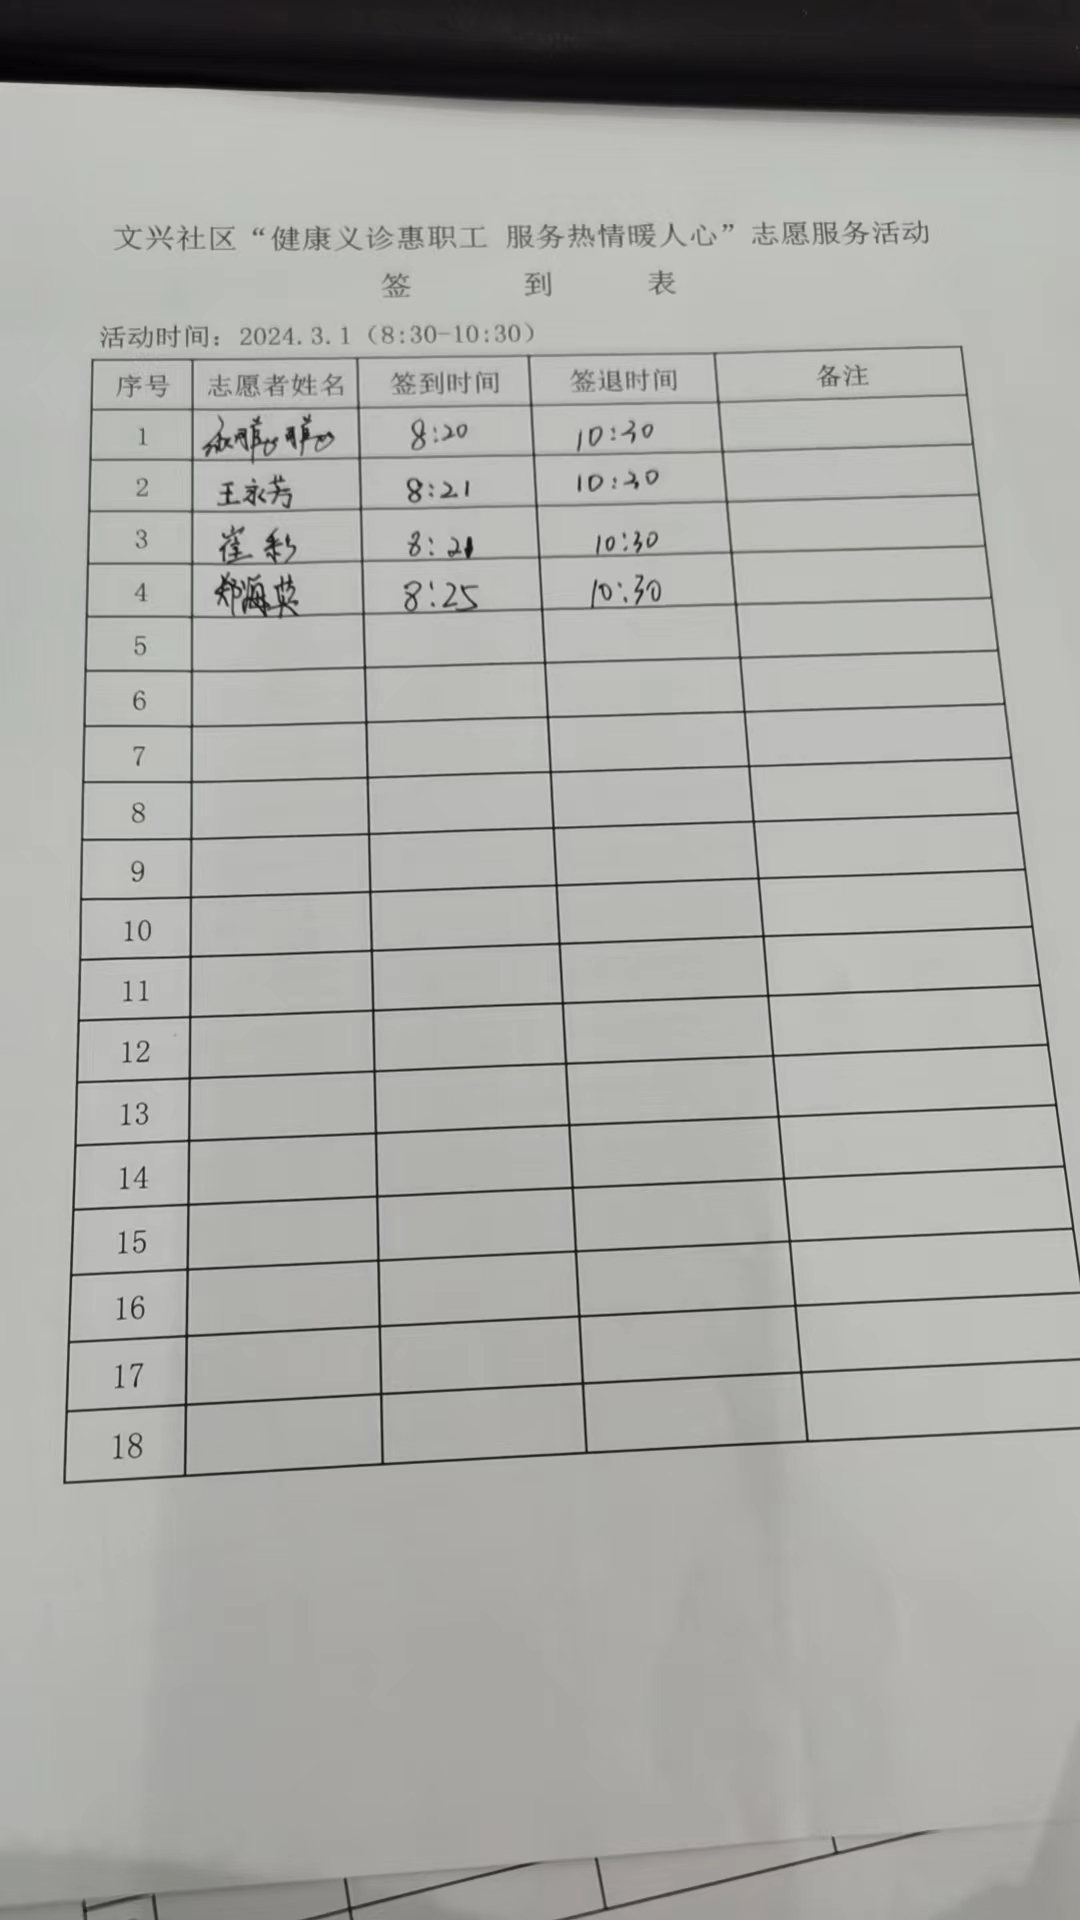 文兴社区“健康义诊惠职工 服务热情暖人心”志愿服务活动
签 到 表
活动时间：2024.3.1（8:30-10:30）
序号 志愿者姓名 签到时间 签退时间 备注
1 8:20 10:30
2 王永芳 8:21 10:30
3 崔彩 8:21 10:30
4 郑海英 8:25 10:30
5
6
7
8
9
10
11
12
13
14
15
16
17
18